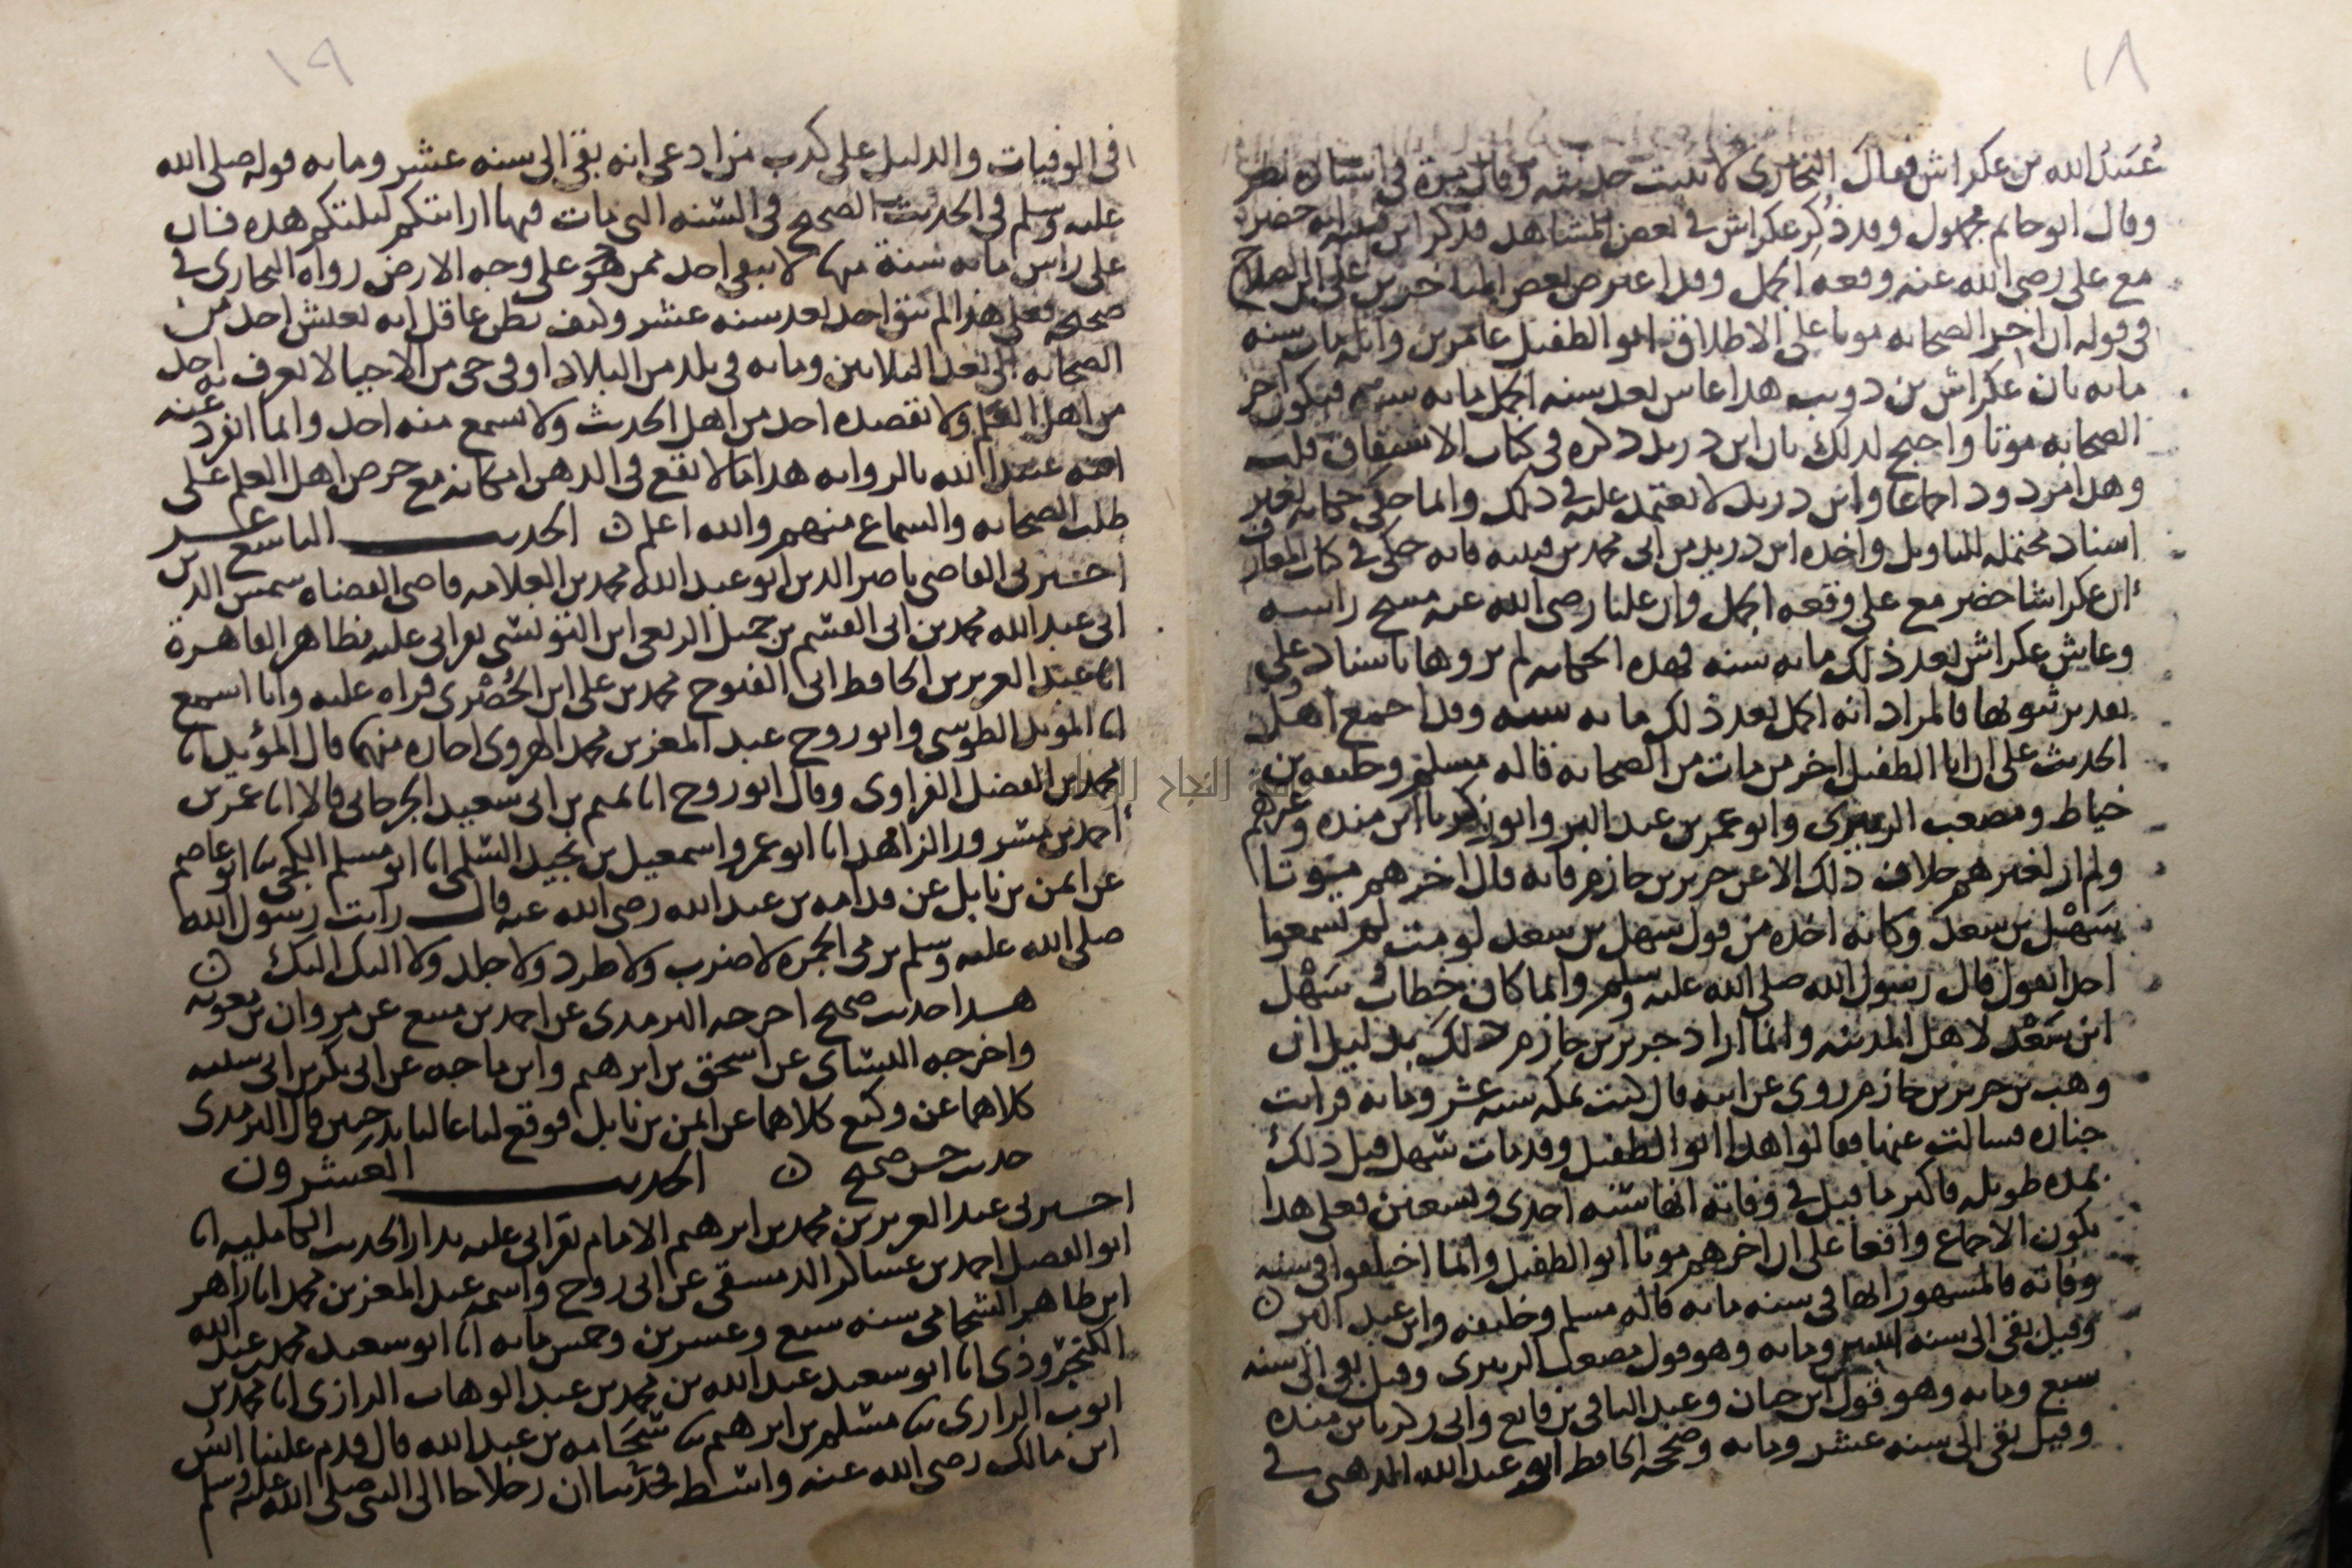 ١٨
عُبَيْدُ الله بن عكراش فقال البخاري لا يثبت حديثه وقال مرة في اسناده نظر
وقال ابو حاتم مجهول وقد ذُكر عكراش في بعض المشاهد فذكر ابن قتيبه انه حضر
مع علي رضي الله عنه وقعه الجمل وقد اعترض بعض المتاخرين على ابن الصلاح
في قوله ان اخر الصحابه موتا على الاطلاق ابو الطفيل عامر بن واثله مات سنه
مايه بان عكراش بن ذويب هذا عاش بعد سنه الجمل مايه سنه فيكون اخر
الصحابه موتا واحتج لذلك بان ابن دريد ذكره في كتاب الاشتقاق قلت
وهذا مردود اجماعا وابن دريد لا يعتمد عليه في ذلك وانما حكى حكايه بغير
اسناد محتمله للتاويل واخذه ابن دريد من ابي محمد بن قتيبه فانه حكى في كتاب المعارف
ان عكراشا حضر مع علي وقعه الجمل وان عليا رضي الله عنه مسح راسه
وعاش عكراش بعد ذلك مايه سنه فهذه الحكايه لم يروها باسناد وعلى
تقدير ثبوتها فالمراد انه اكمل بعد ذلك مايه سنه وقد اجمع اهل
الحديث على ان ابا الطفيل اخر من مات من الصحابه قاله مسلم وخليفه بن
خياط ومصعب الزبيري وابو عمر بن عبد البر وابو زكريا ابن منده وغيرهم
ولم ار لغيرهم خلاف ذلك الا عن جرير بن حازم فانه قال اخرهم موتا
سَهْل بن سعد وكانه اخذه من قول سهل بن سعد لو مت لم تسمعوا
احدا يقول قال رسول الله صلى الله عليه وسلم وانما كان خطابُ سَهْل
ابن سَعْد لاهل المدينه وانما اراد جرير بن حازم ذلك بدليل ان
وهب بن جرير بن حازم روى عن ابيه قال كنت بمكه سنه عشر ومايه فرايت
جنازه فسالت عنها فقالوا هذا ابو الطفيل وقد مات سهل قبل ذلك
بمده طويله فاكثر ما قيل في وفاته انها سنه احدى وتسعين فعلى هذا
يكون الاجماع واقعا على ان اخرهم موتا ابو الطفيل وانما اختلفوا في سنه
وفاته فالمشهور انها في سنه مايه قاله مسلم وخليفه وابن عبد البر ن
وقيل بقي الى سنه اثنين ومايه وهو قول مصعب الزبيري وقيل بقي الى سنه
سبع ومايه وهو قول ابن حبان وعبد الباقي بن قانع وابي زكريا بن منده
وقيل بقي الى سنه عشر ومايه وصححه الحافظ ابو عبد الله الذهبي في
١٩
في الوفيات والدليل على كذب من ادعى انه بقي الى سنه عشر ومايه قوله صلى الله
عليه وسلم في الحديث الصحيح في السنه التي مات فيها ارايتكم ليلتكم هذه فان
على راس مايه سنة منها لا يبقى احد ممن هو على وجه الارض رواه البخاري في
صحيحه فعلى هذا لم يبق احد بعد سنه عشر وكيف يظن عاقل انه يعيش احد من
الصحابه الى بعد الثلاثين ومايه في بلد من البلاد او في حي من الاحيا لا يعرف به احد
من اهل العلم ولا يقصده احد من اهل الحديث ولا يسمع منه احد وانما انفرد عنه
ابنه عبيد الله بالروايه هذا ما لا يقع في الذهن امكانه مع حرص اهل العلم على
طلب الصحابه والسماع منهم والله اعلم ن الحديث التاسع عشر
اخبرني القاضي ناصر الدين ابو عبد الله محمد بن العلامه قاضي القضاه شمس الدين
ابي عبد الله محمد بن ابي القسم بن جميل الربعي ابن التونسي بقراتي عليه بظاهر القاهرة
انا عبد العزيز بن الحافظ ابي الفتوح محمد بن علي ابن الحُصْري قراه عليه وانا اسمع
انا المويد الطوسي وابو روح عبد المعز بن محمد الهروي اجازه منهما قال المؤيد انا
محمد بن الفضل الفراوي وقال ابو روح انا تميم بن ابي سعيد الجرجاني قالا انا عمر بن
احمد بن مسرور الزاهد انا ابو عمرو اسمعيل بن نجيد السلمي انا ابو مسلم الكجي ثنا ابو عاصم
عن ايمن بن نابل عن قدامه بن عبد الله رضي الله عنه قال رايت رسول الله
صلى الله عليه وسلم يرمي الجمره لا ضرب ولا طرد ولا جلد ولا اليك اليك ن
هذا حديث صحيح اخرجه الترمذي عن احمد بن منيع عن مروان بن معويه
واخرجه النساي عن اسحق بن ابرهيم وابن ماجه عن ابي بكر بن ابي شيبه
كلاهما عن وكيع كلاهما عن ايمن بن نابل فوقع لنا عاليا بدرجتين قال الترمذي
حديث حسن صحيح ن الحديث العشرون
اخبرني عبد العزيز بن محمد بن ابرهيم الامام بقراتي عليه بدار الحديث الكامليه انا
ابو الفضل احمد بن عساكر الدمشقي عن ابي روح واسمه عبد المعز بن محمد انا زاهر
ابن طاهر الشحامي سنه سبع وعشرين وخمس مايه انا ابو سعيد محمد بن عبد الله
الكنجروذي انا ابو سعيد عبد الله بن محمد بن عبد الوهاب الرازي انا محمد بن
ايوب الرازي ثنا مسلم بن ابرهيم ثنا شحامه بن عبد الله قال قدم علينا انس
ابن مالك رضي الله عنه واسط فحدثنا ان رجلا جا الى النبي صلى الله عليه وسلم